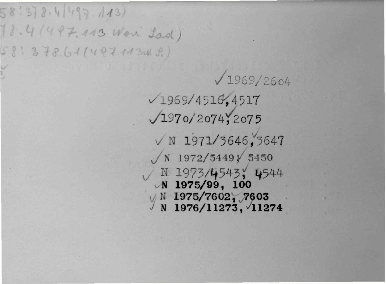 58:378.4(497.113)
78.4(497.113 Novi Sad)
58:378.61(497.113 N.S.)
✓1969/2604
✓1969/4516,✓4517
✓1970/2074,✓2075
✓ N 1971/3646,✓3647
✓ N 1972/5449,✓5450
✓ N 1973/4543,✓4544
✓N 1975/99, 100
✓N 1975/7602,✓7603
✓N 1976/11273,✓11274